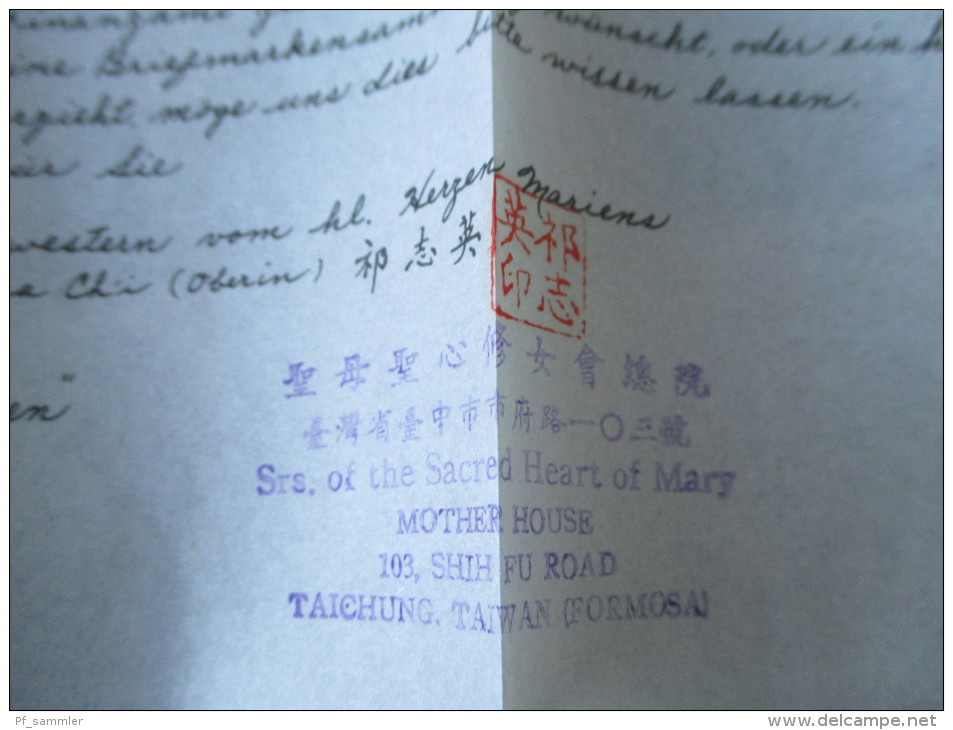 eine Briefmarkensam wünscht, oder ein
möge uns dies bitte wissen lassen.
Sie
western vom hl. Herzen Mariens
Ch'i (Oberin) 祁志英
祁志英印
en"
聖母聖心修女會總院
臺灣省臺中市市府路一〇三號
Srs. of the Sacred Heart of Mary
MOTHER HOUSE
103, SHIH FU ROAD
TAICHUNG, TAIWAN (FORMOSA)
Pf_sammler
www.delcampe.net